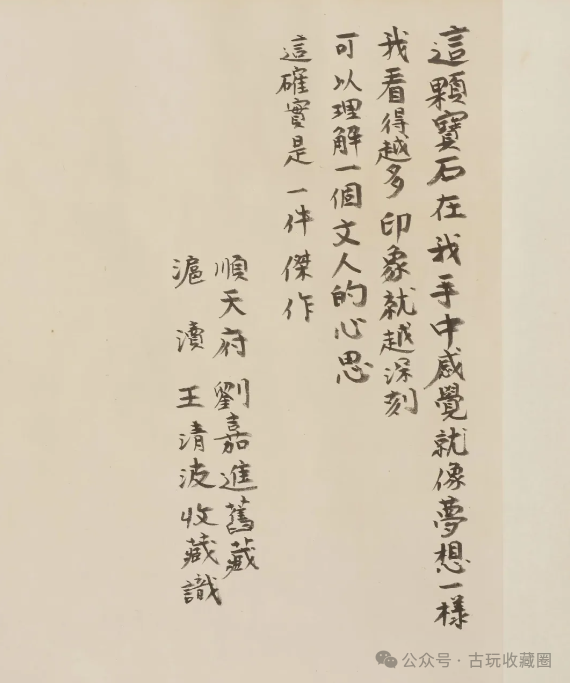 這顆寶石在我手中感覺就像夢想一樣
我看得越多印象就越深刻
可以理解一個文人的心思
這確實是一件傑作
順天府劉嘉進舊藏
滬瀆王清波收藏識
公众号·古玩收藏圈